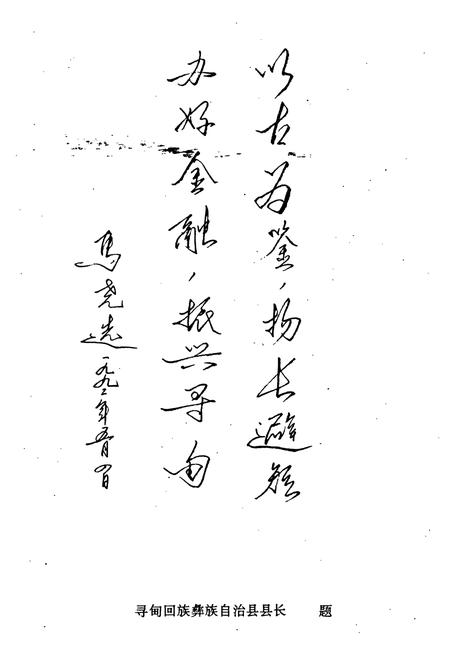 以古为鉴，扬长避短
办好金融，振兴寻甸
马尧选一九九二年五月四日
寻甸回族彝族自治县县长　题